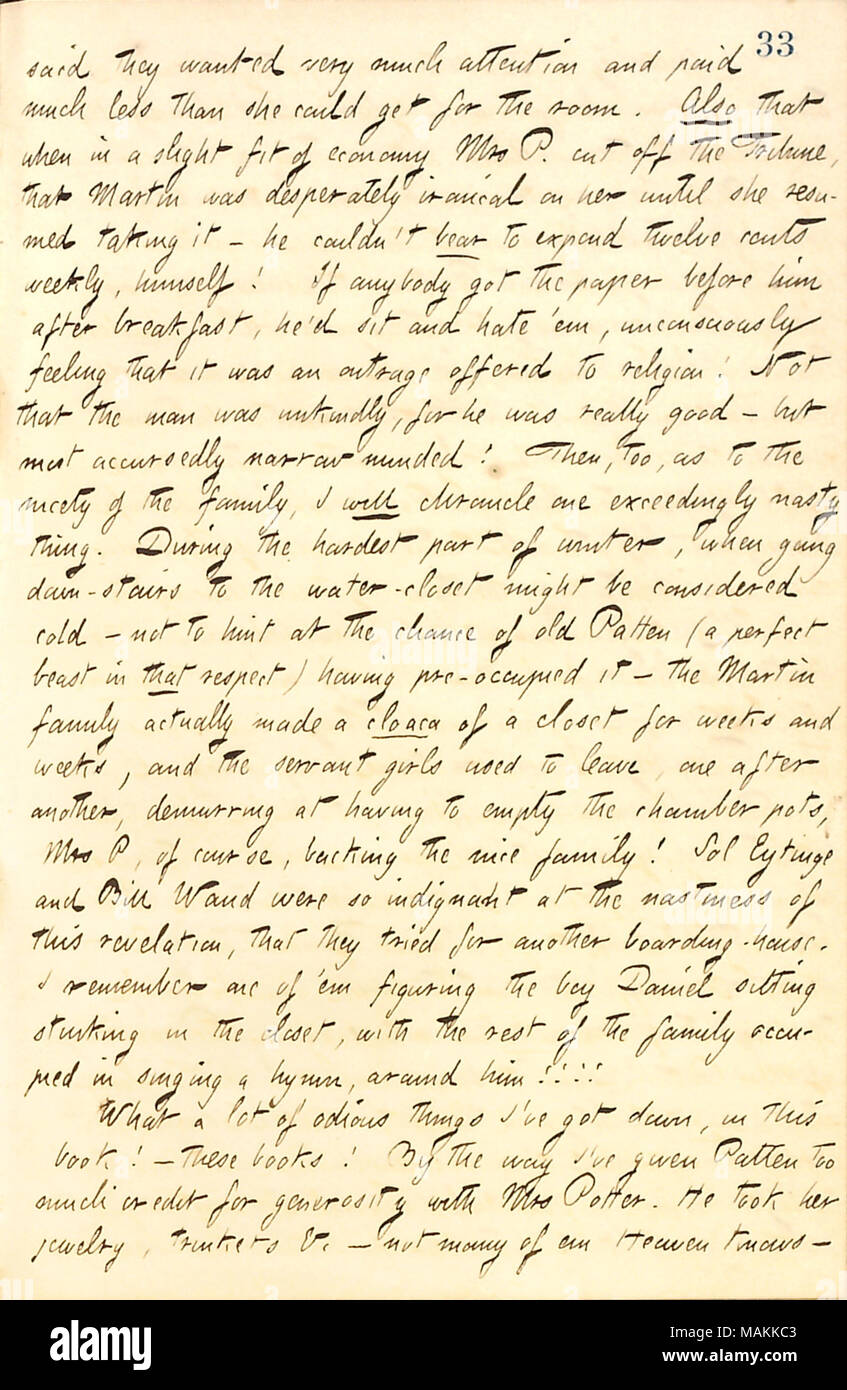 33
said they wanted very much attention and paid
much less than she could get for the room. Also that
when in a slight fit of economy Mrs P. cut off the Tribune,
that Martin was desperately ironical on her until she resu-
med taking it — he couldn't bear to expend twelve cents
weekly, himself! If anybody got the paper before him
after breakfast, he'd sit and hate 'em, unconsciously
feeling that it was an outrage offered to religion! Not
that the man was unkindly, for he was really good — but
most accursedly narrow minded! Then, too, as to the
nicety of the family, I will chronicle one exceedingly nasty
thing. During the hardest part of winter, when going
down-stairs to the water-closet might be considered
cold — not to hint at the chance of old Patten (a perfect
beast in that respect) having pre-occupied it — the Martin
family actually made a cloaca of a closet for weeks and
weeks, and the servant girls used to leave, one after
another, demurring at having to empty the chamber pots,
Mrs P, of course, backing the nice family! Sol Eytinge
and Bill Waud were so indignant at the nastiness of
this revelation, that they tried for another boarding-house.
I remember one of 'em figuring the boy Daniel sitting
stinking in the closet, with the rest of the family occu-
pied in singing a hymn, around him!!!!
What a lot of odious things I've got down, in this
book! — these books! By the way I've given Patten too
much credit for generosity with Mrs Potter. He took her
jewelry, trinkets &c — not many of em Heaven knows —
alamy
Image ID: MAKKC3
www.alamy.com